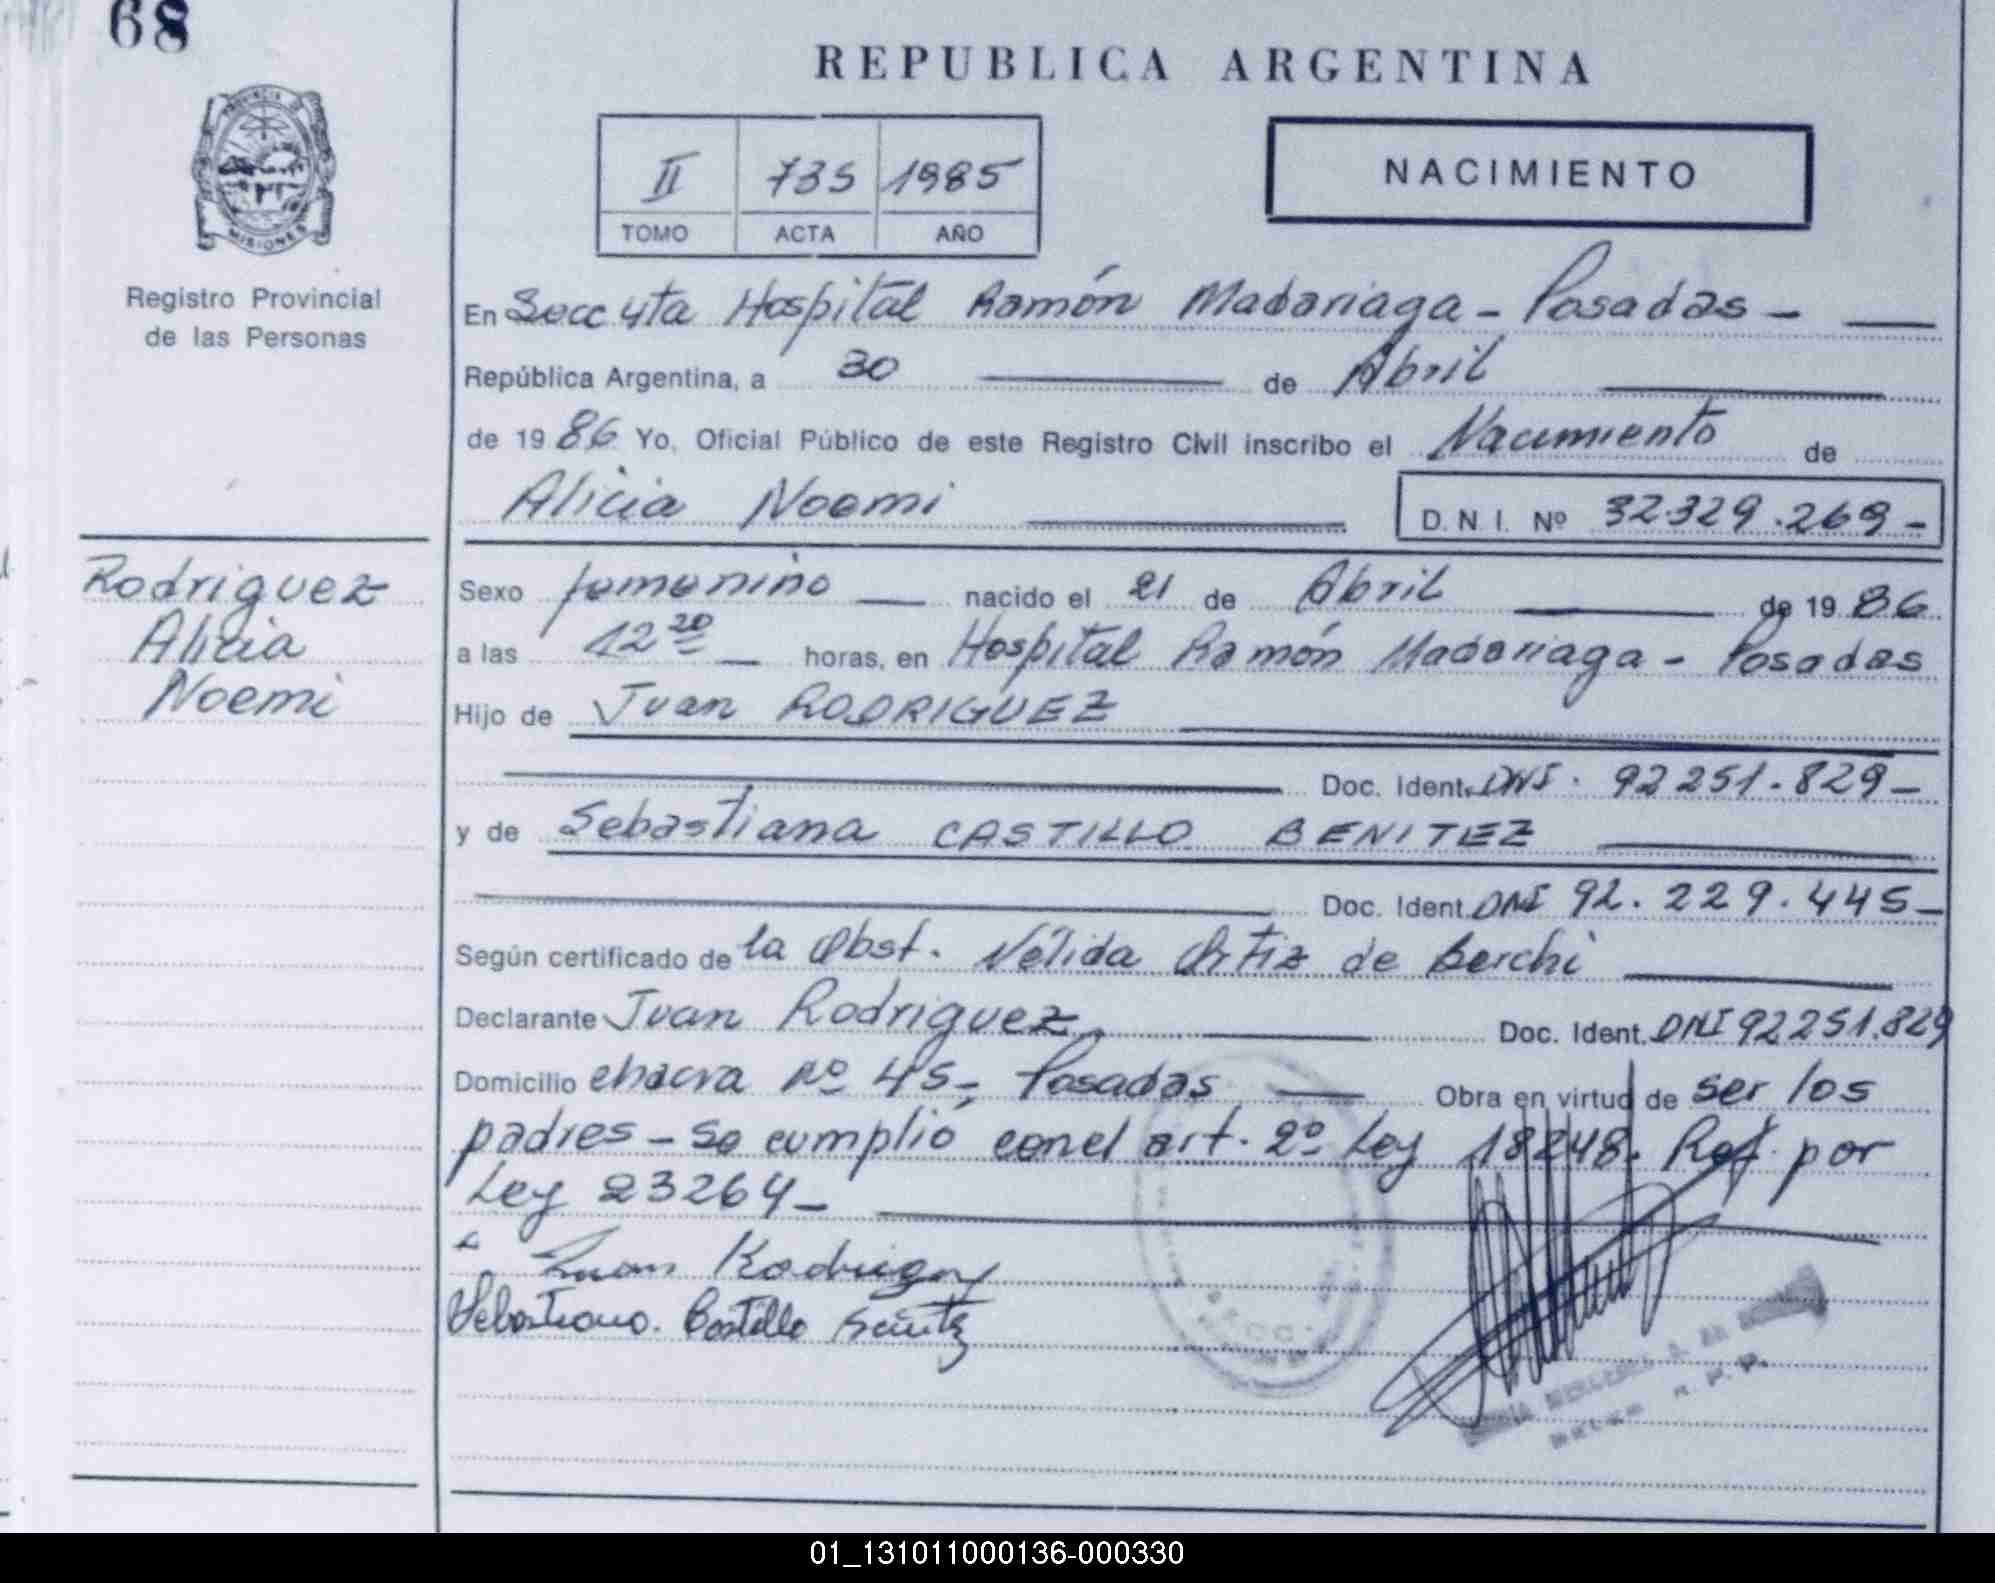 68
REPUBLICA ARGENTINA
PROVINCIA DE
MISIONES
Registro Provincial
de las Personas
II 735 1985
TOMO ACTA AÑO
NACIMIENTO
En Secc 4ta Hospital Ramón Madariaga - Posadas -
República Argentina, a 30 de Abril
de 1986 Yo, Oficial Público de este Registro Civil inscribo el Nacimiento de
Alicia Noemi D.N.I. Nº 32.329.269-
Rodriguez
Alicia
Noemi
Sexo femenino nacido el 21 de Abril de 1986
a las 12 20 horas, en Hospital Ramón Madariaga - Posadas
Hijo de Juan RODRIGUEZ
Doc. Ident. DNI. 92251.829-
y de Sebastiana CASTILLO BENITEZ
Doc. Ident. DNI 92.229.445-
Según certificado de la Obst. Nélida Ortiz de Berchi
Declarante Juan Rodriguez Doc. Ident. DNI 92251.829
Domicilio chacra Nº 45- Posadas Obra en virtud de ser los
padres - Se cumplió con el art. 2º Ley 18248. Ref. por
Ley 23264-
Juan Rodriguez
Sebastiana Castillo Benitez
01_131011000136-000330